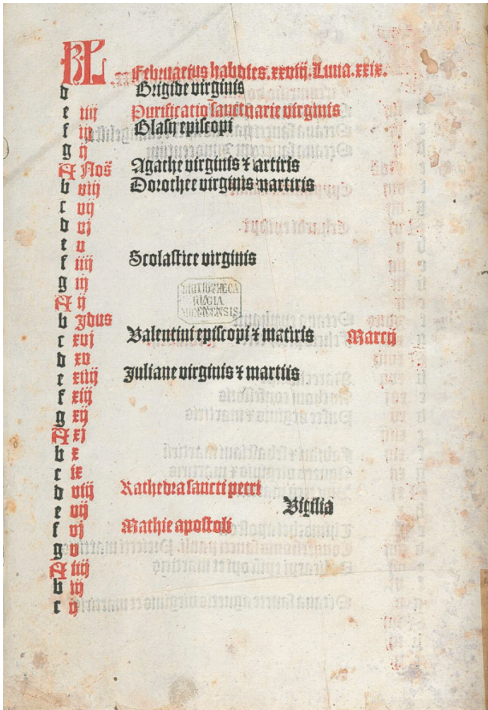 KL Februarius hab dies. xxviij. Luna. xxix.
d Brigide virginis
e iiij Purificatio sancte marie virginis
f iij Blasij episcopi
g ij
A Noṅ Agathe virginis ⁊ artiris
b viij Dorothee virginis ⁊ martiris
c vij
d vj
e v
f iiij Scolastice virginis
g iij
A ij
b Jdus
c xvj Valentini episcopi ⁊ martiris Marcij
d xv
e xiiij Juliane virginis ⁊ martiris
f xiij
g xij
A xj
b x
c ix
d viij Kathedra sancti petri
e vij Vigilia
f vj Mathie apostoli
g v
A iiij
b iij
c ij
BIBLIOTHECA
REGIA
MONACENSIS